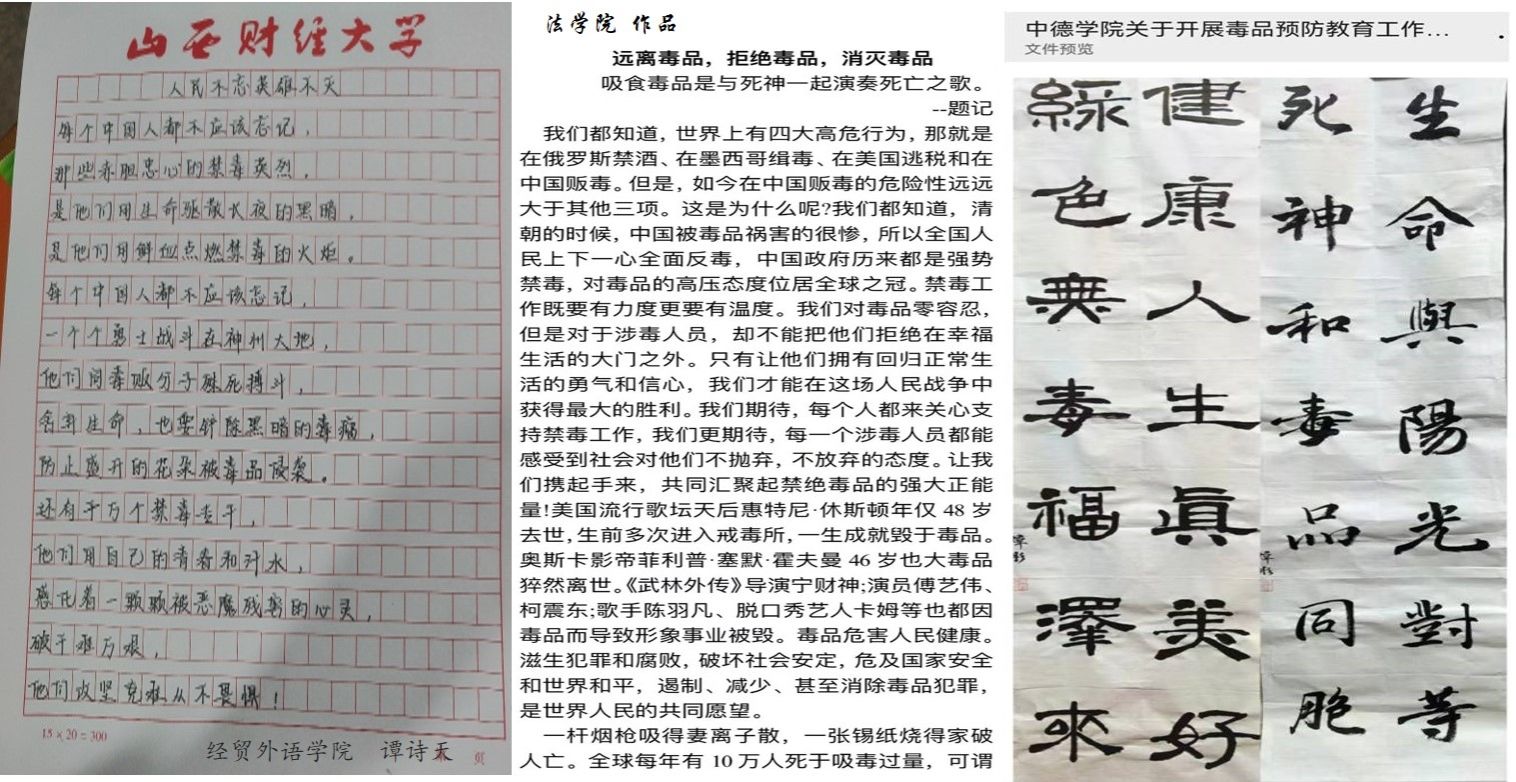 山西财经大学
人民不忘英雄不灭
每个中国人都不应该忘记，
那些赤胆忠心的禁毒英烈，
是他们用生命驱散长夜的黑暗，
是他们用鲜血点燃禁毒的火炬。
每个中国人都不应该忘记，
一个个勇士战斗在神州大地，
他们同毒贩分子殊死搏斗，
舍弃生命，也要铲除黑暗的毒瘤，
防止盛开的花朵被毒品侵袭。
还有千万个禁毒者干，
他们用自己的青春和汗水，
感化着一颗颗被恶魔残害的心灵，
破千难万艰，
他们攻坚克难从不畏惧！
15×20=300
经贸外语学院 谭诗天
页
法学院 作品
远离毒品，拒绝毒品，消灭毒品
吸食毒品是与死神一起演奏死亡之歌。
--题记
我们都知道，世界上有四大高危行为，那就是
在俄罗斯禁酒、在墨西哥缉毒、在美国逃税和在
中国贩毒。但是，如今在中国贩毒的危险性远远
大于其他三项。这是为什么呢?我们都知道，清
朝的时候，中国被毒品祸害的很惨，所以全国人
民上下一心全面反毒，中国政府历来都是强势
禁毒，对毒品的高压态度位居全球之冠。禁毒工
作既要有力度更要有温度。我们对毒品零容忍，
但是对于涉毒人员，却不能把他们拒绝在幸福
生活的大门之外。只有让他们拥有回归正常生
活的勇气和信心，我们才能在这场人民战争中
获得最大的胜利。我们期待，每个人都来关心支
持禁毒工作，我们更期待，每一个涉毒人员都能
感受到社会对他们不抛弃，不放弃的态度。让我
们携起手来，共同汇聚起禁绝毒品的强大正能
量!美国流行歌坛天后惠特尼·休斯顿年仅 48 岁
去世,生前多次进入戒毒所,一生成就毁于毒品。
奥斯卡影帝菲利普·塞默·霍夫曼 46 岁也大毒品
猝然离世。《武林外传》导演宁财神;演员傅艺伟、
柯震东;歌手陈羽凡、脱口秀艺人卡姆等也都因
毒品而导致形象事业被毁。毒品危害人民健康。
滋生犯罪和腐败，破坏社会安定，危及国家安全
和世界和平，遏制、减少、甚至消除毒品犯罪，
是世界人民的共同愿望。
一杆烟枪吸得妻离子散，一张锡纸烧得家破
人亡。全球每年有 10 万人死于吸毒过量，可谓
中德学院关于开展毒品预防教育工作...
文件预览
生命與陽光對等
死神和毒品同胞
健康人生真美好
綠色無毒福澤來